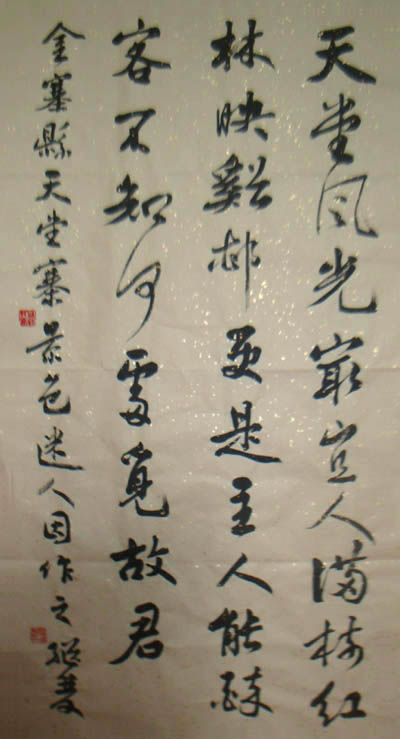 天堂风光最宜人满枝红
林映谿邨更是主人能醉
客不知何處覓故君
金寨縣天堂寨景色迷人因作之